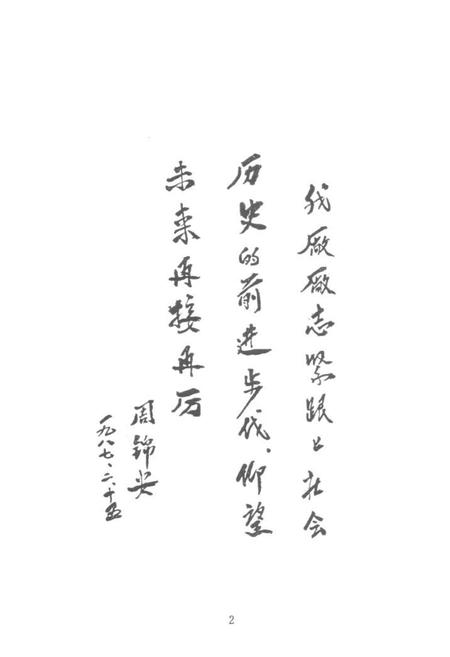 我厰厰志紧跟上社会
历史的前进步伐、仰望
未来再接再厉
周锦安
一九八七、二、十五
2